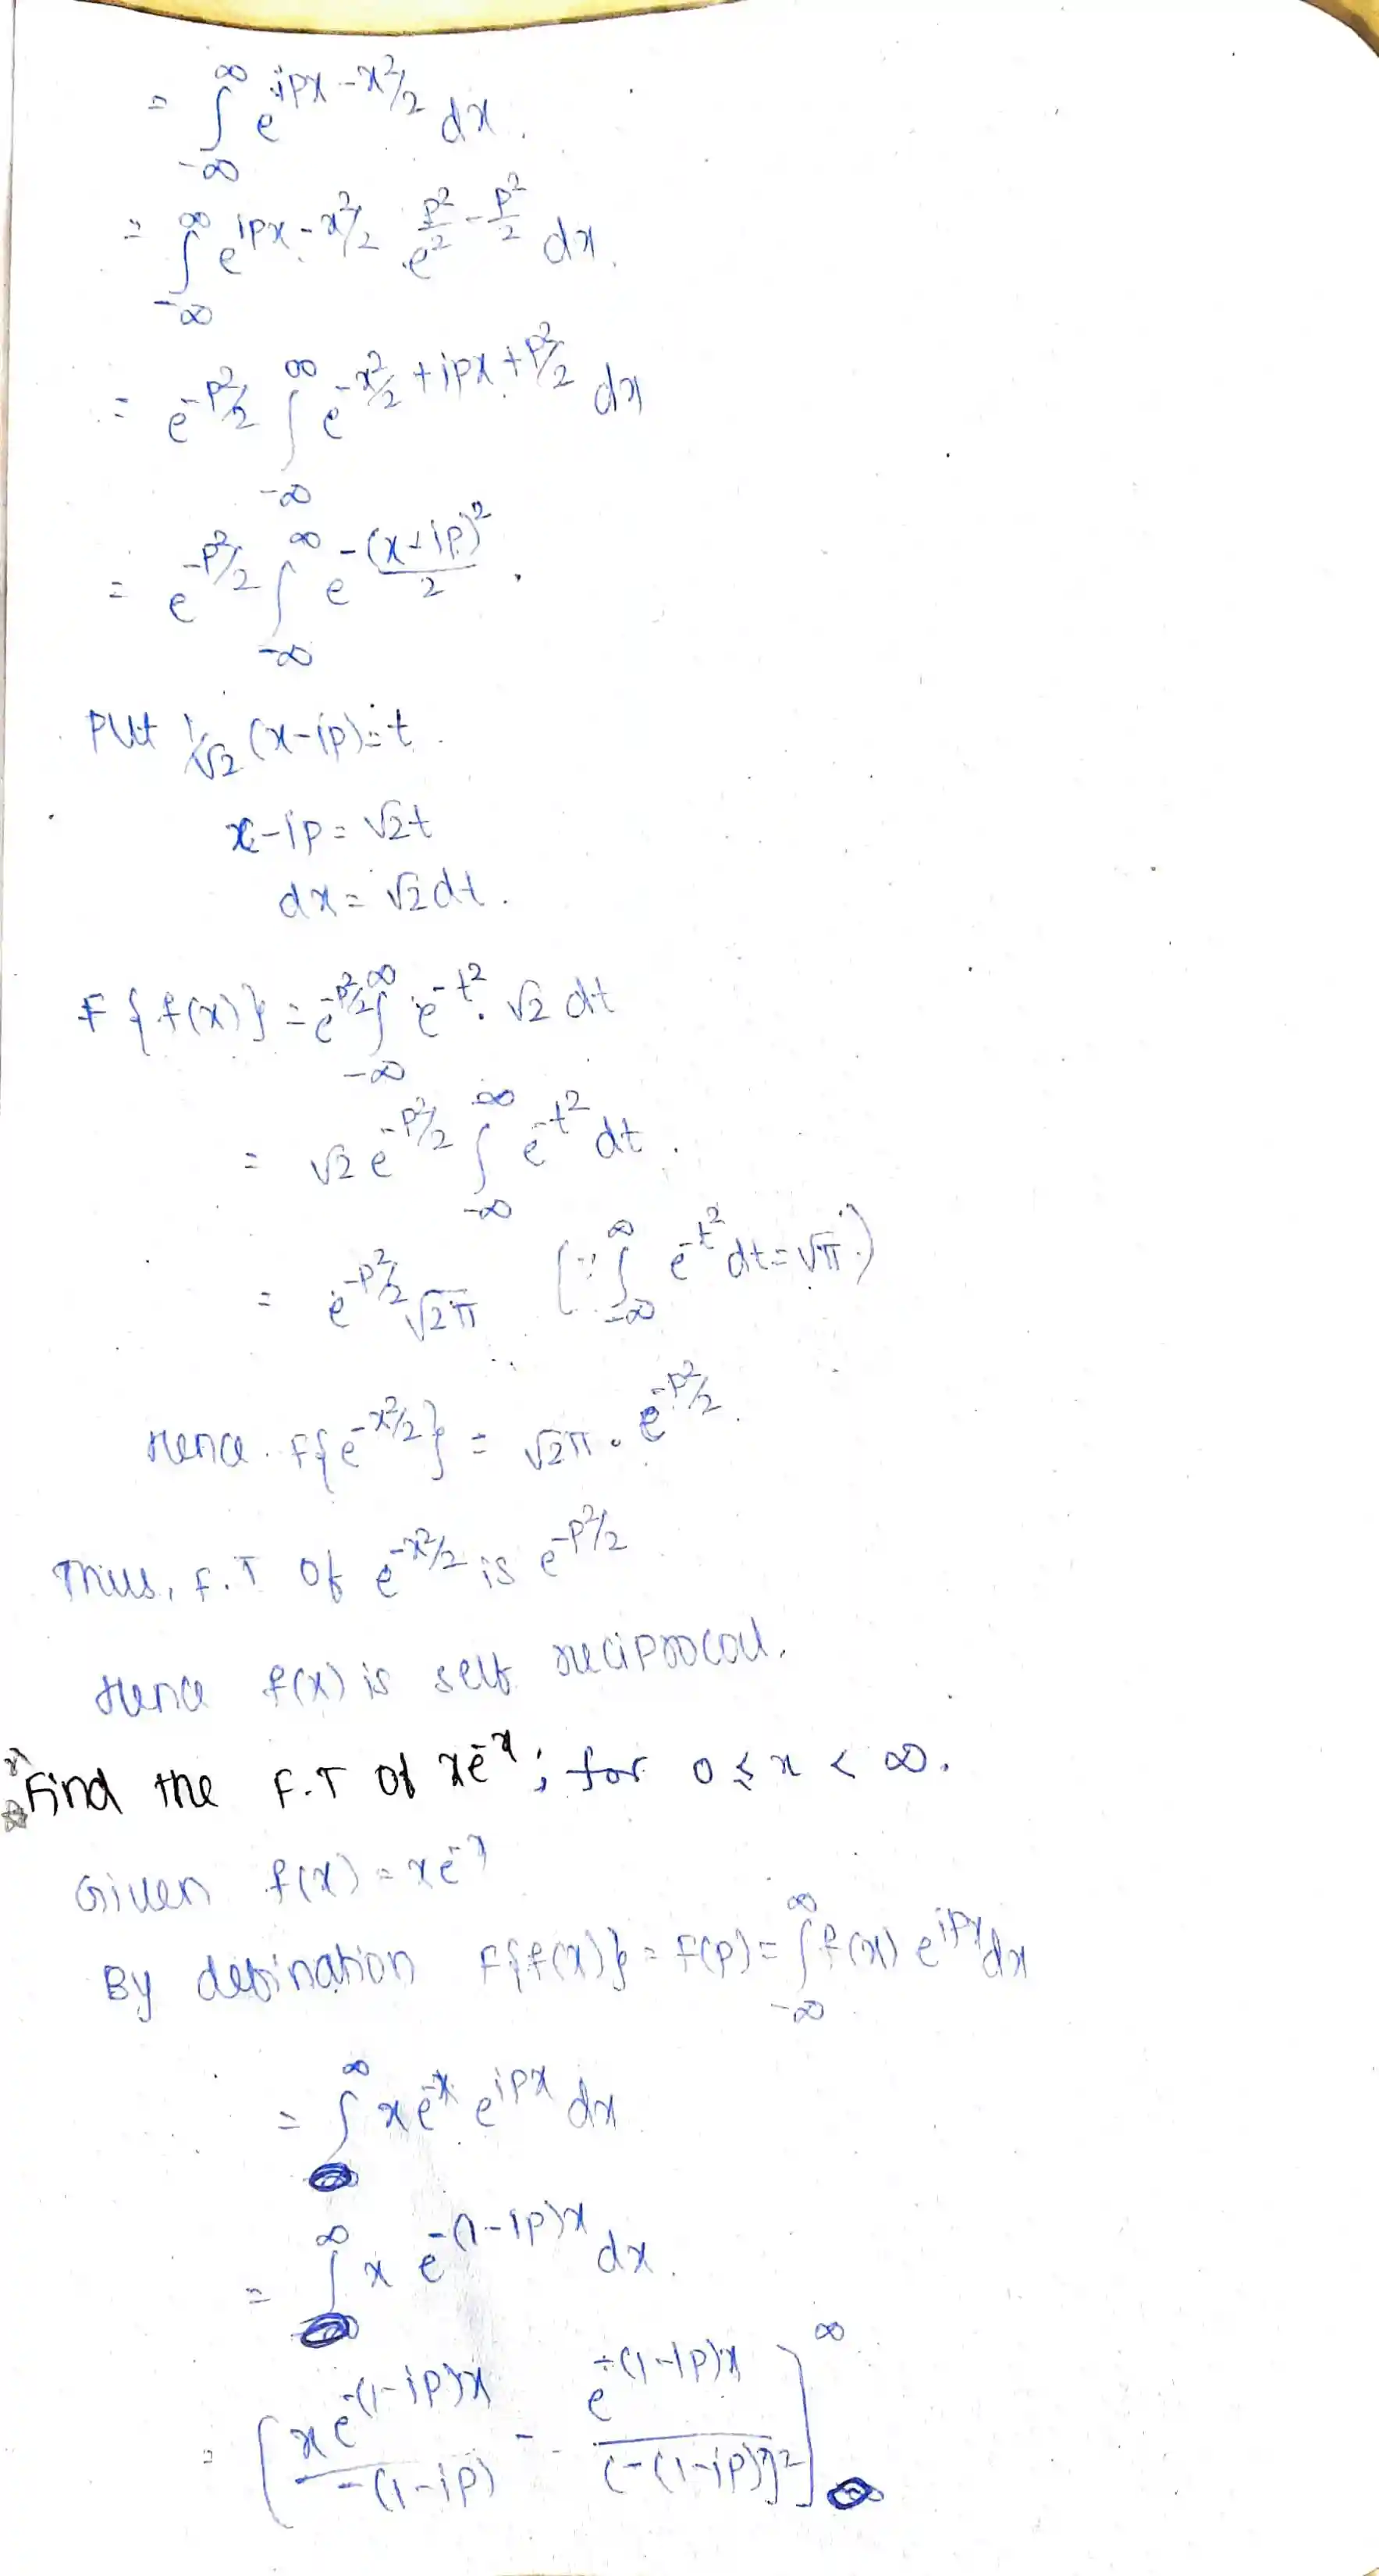 = ∫_{-∞}^{∞} e^{ipx - x²/2} dx.
= ∫_{-∞}^{∞} e^{ipx - x²/2} . e^{p²/2 - p²/2} dx.
= e^{-p²/2} ∫_{-∞}^{∞} e^{-x²/2 + ipx + p²/2} dx
= e^{-p²/2} ∫_{-∞}^{∞} e^{-(x-ip)²/2}.
Put 1/√2 (x-ip) = t.
x-ip = √2t
dx = √2dt.
F{f(x)} = e^{-p²/2} ∫_{-∞}^{∞} e^{-t²}. √2 dt
= √2 e^{-p²/2} ∫_{-∞}^{∞} e^{-t²} dt.
= e^{-p²/2} √2π (∵ ∫_{-∞}^{∞} e^{-t²} dt = √π.)
Hence. F{e^{-x²/2}} = √2π . e^{-p²/2}.
Thus, F.T Of e^{-x²/2} is e^{-p²/2}
Hence f(x) is self reciprocal.
Find the F.T Of xe^{-x}; for 0 ≤ x < ∞.
Given f(x) = xe^{-x}
By defination F{f(x)} = F(p) = ∫_{-∞}^{∞} f(x) e^{ipx} dx
= ∫^{∞} x e^{-x} e^{ipx} dx
= ∫^{∞} x e^{-(1-ip)x} dx.
= [x e^{-(1-ip)x} / -(1-ip) - e^{-(1-ip)x} / (-(1-ip))²]^{∞}